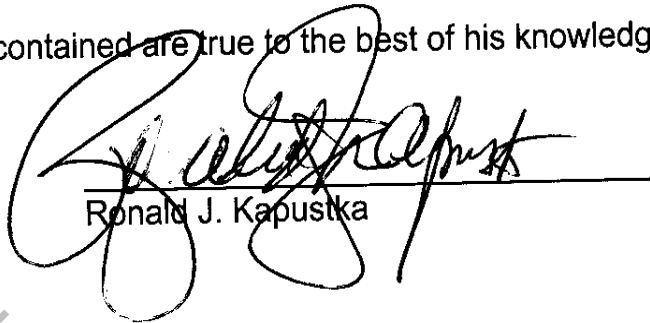 contained are true to the best of his knowledg
Ronald J. Kapustka